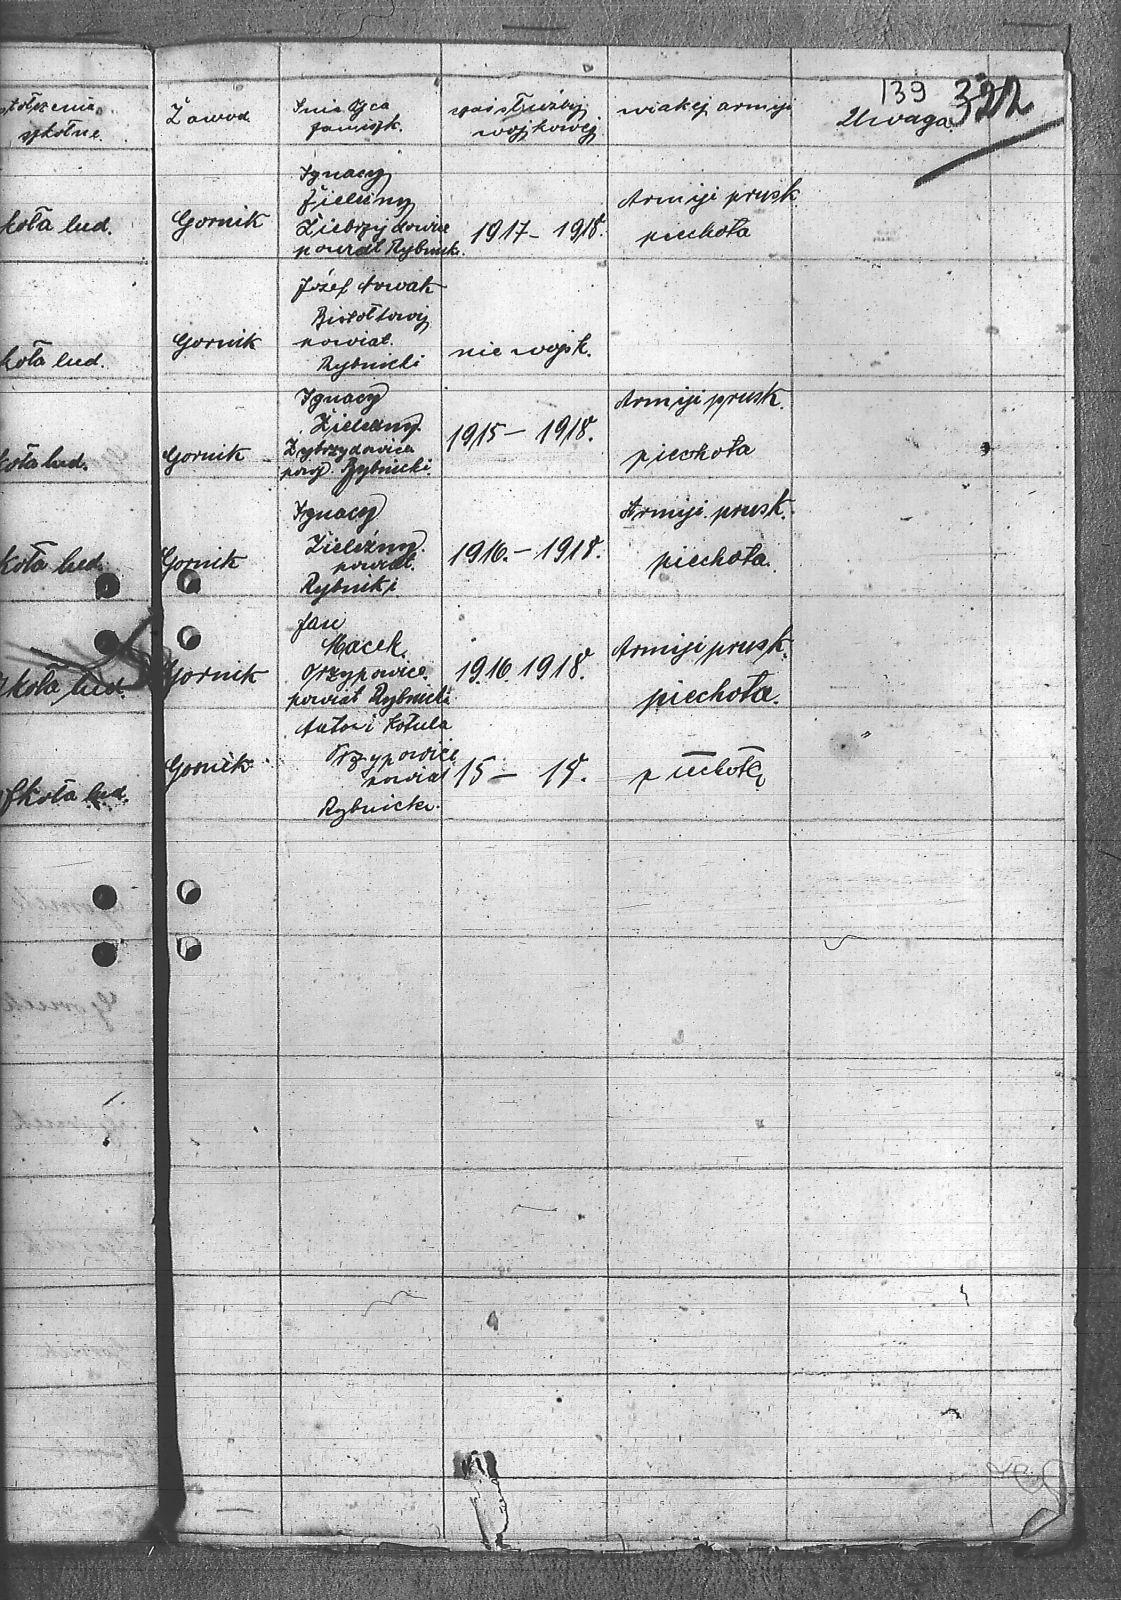 139 322
szkolne
Zawod
Imie Ojca
zamieszk.
służby
wojskowej
w iakej armiji
Uwaga
koła lud.
Gornik
Ignacy
Zielezny
powiat Rybnick.
1917 – 1918.
Armiji prusk.
piechota
koła lud.
Gornik
Józef Nowak
powiat.
Rybnicki
nie wojsk.
koła lud.
Gornik
Ignacy
Zielezny
Rybnicki.
1915 – 1918.
Armiji prusk.
piechota
koła lud.
Gornik
Ignacy
Zielezny.
powiat.
Rybniki
1916. – 1918.
Armiji prusk.
piechota.
Skoła lud.
Gornik
Jan
Macek.
Orzypowice.
powiat Rybnicki
1916 1918.
Armiji prusk.
piechota.
Skoła lud.
Gornik
Antoni Kotula
Orzypowice
powiat
Rybnicki.
15 – 18.
piechota